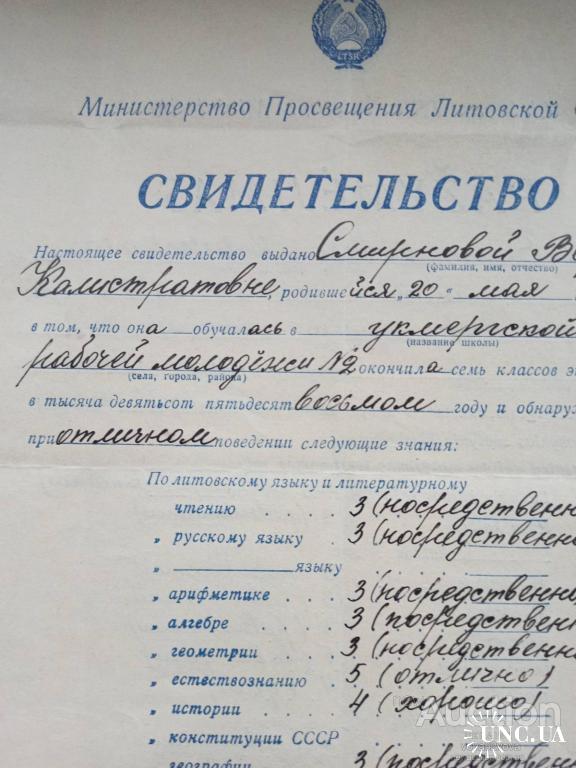 LTSR
Министерство Просвещения Литовской
СВИДЕТЕЛЬСТВО
Настоящее свидетельство выдано Смирновой
(фамилия, имя, отчество)
Калистратовне, родившейся „20“ мая
в том, что она обучалась в укмергской
(название школы)
рабочей молодёжи №2 окончила семь классов
(села, города, района)
в тысяча девятьсот пятьдесят восьмом году и
при отличном поведении следующие знания:
По литовскому языку и литературному
чтению . . . . 3 (посредственн
„ русскому языку . 3 (посредственн
„ языку
„ арифметике . . . 3 (посредственн
„ алгебре . . . . 3 (посредственн
„ геометрии . . . 3 (посредственн
„ естествознанию . 5 (отлично)
„ истории . . . . 4 (хорошо)
„ конституции СССР
географии 3 (посредственн
Auction
UNC.UA